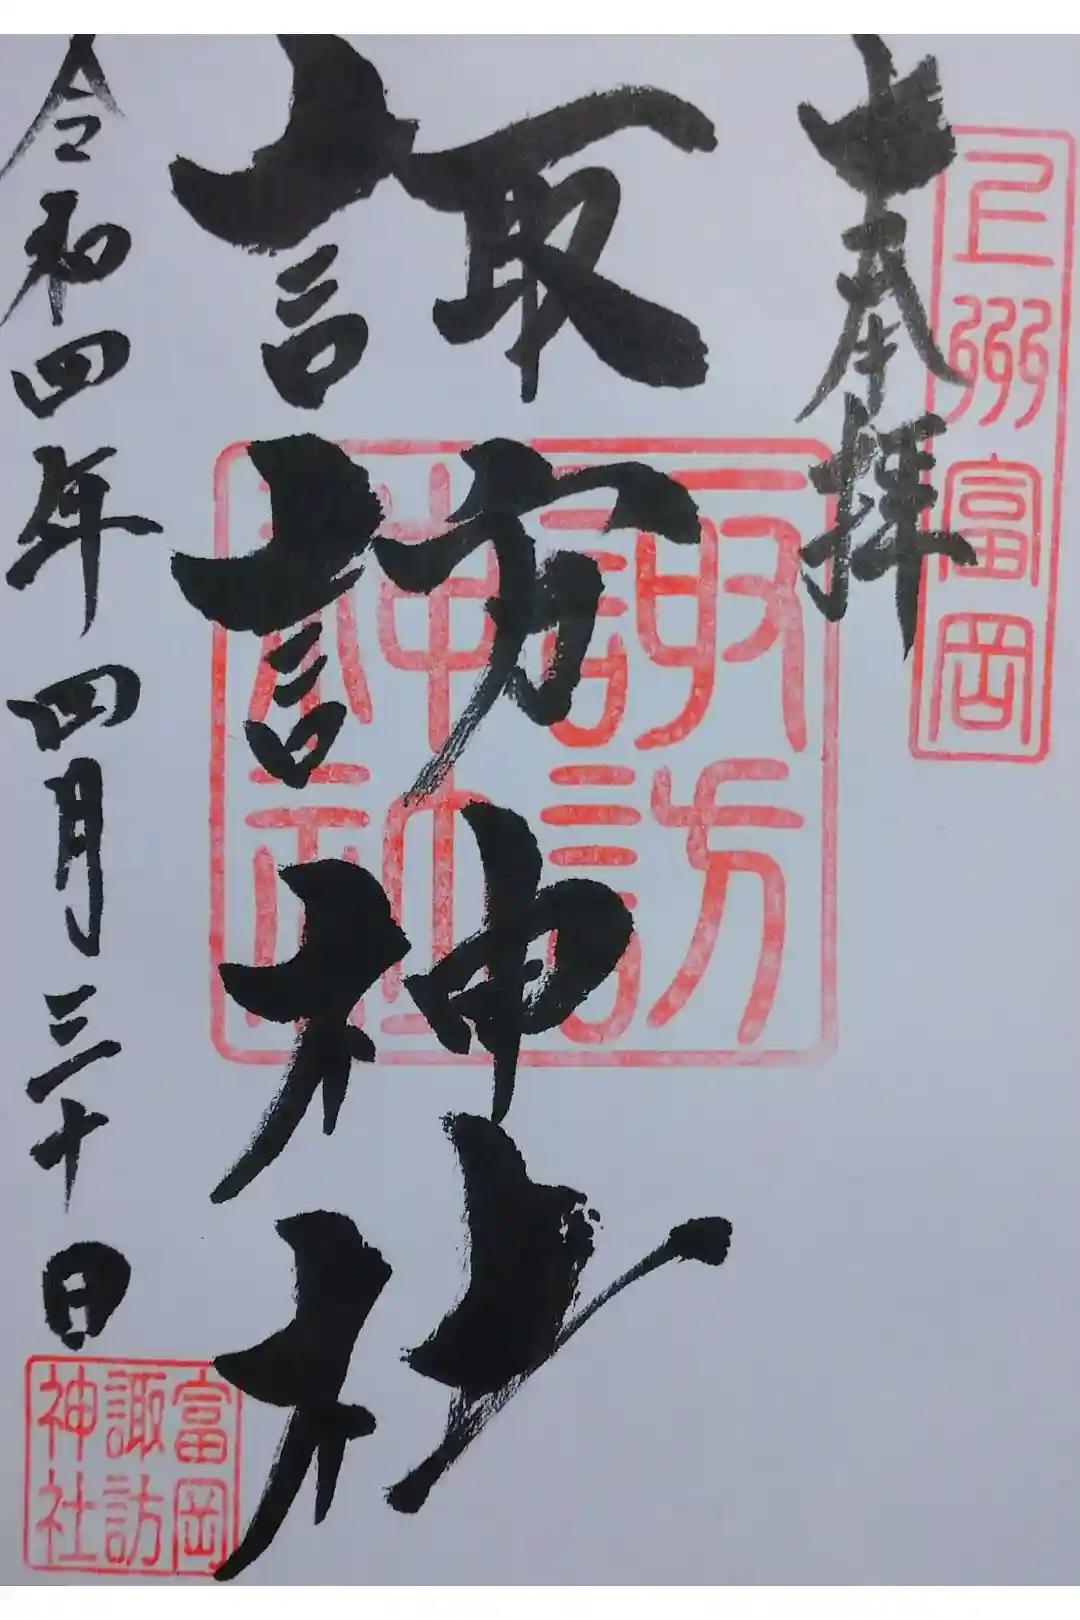 奉拝
上州富岡
諏訪神社
諏訪
神社
令和四年四月三十日
富岡
諏訪
神社